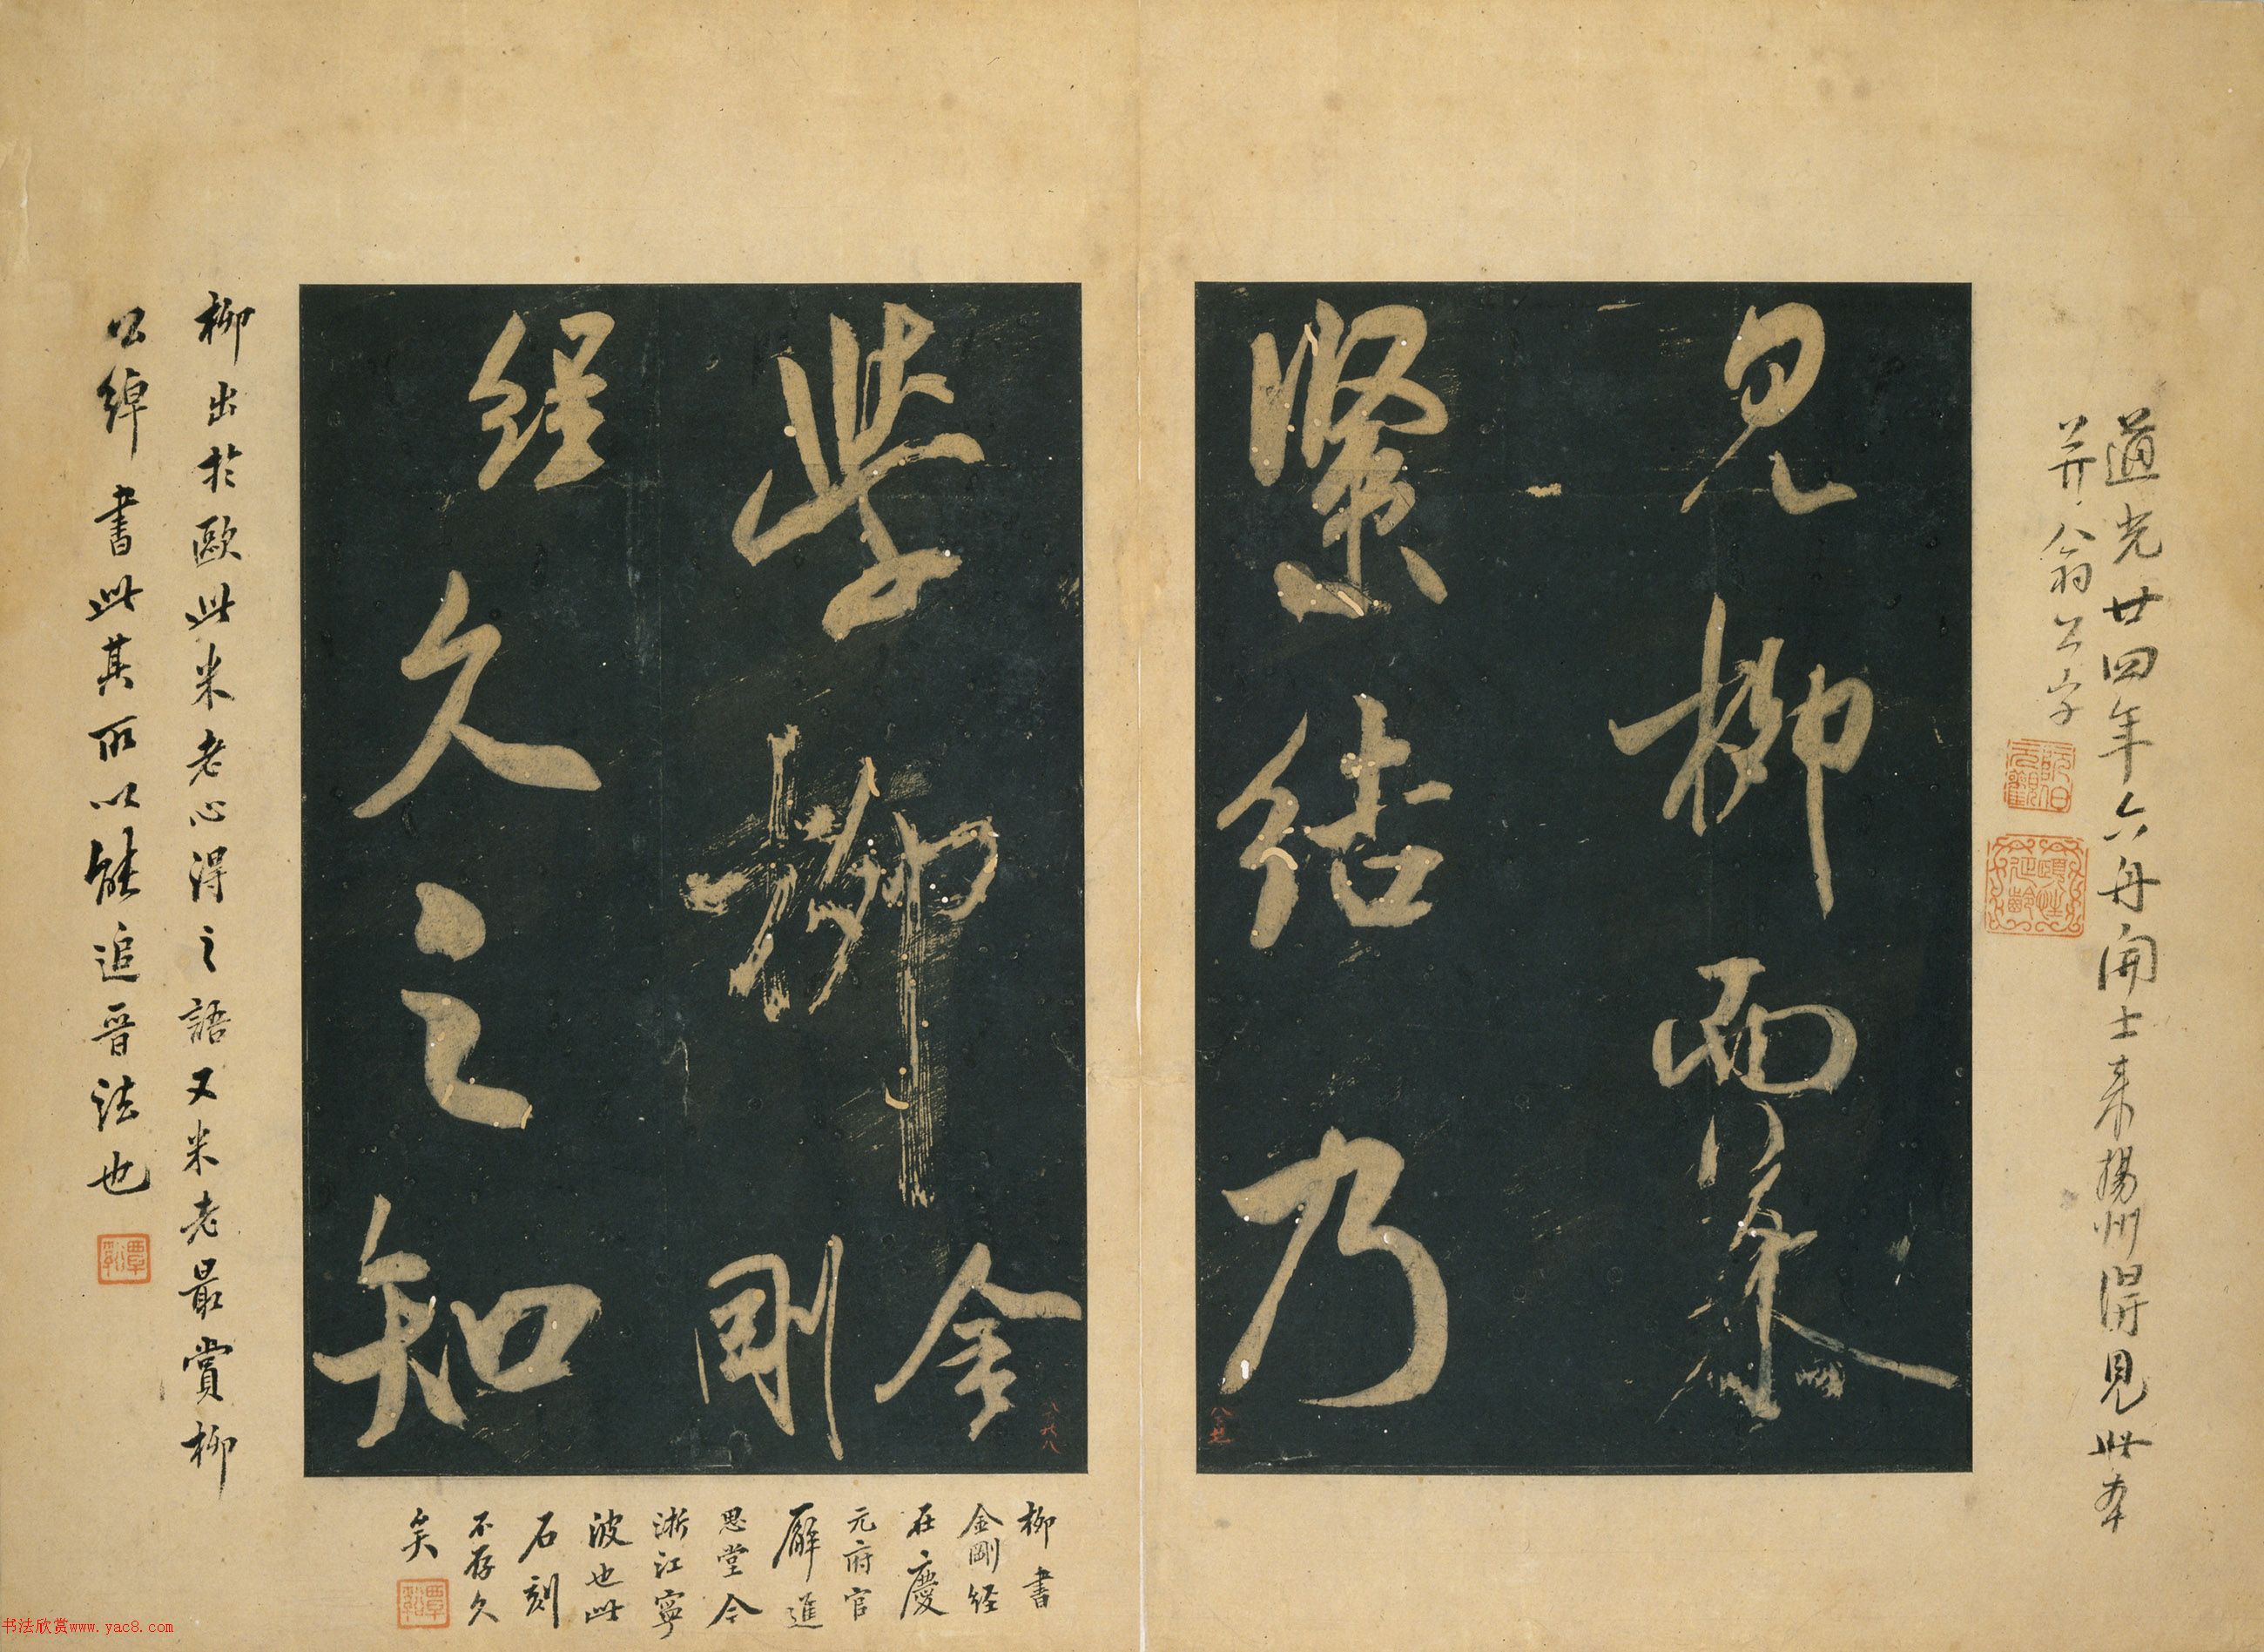 道光廿四年六舟開士來揚州得見此本
并翁公字
見柳而慕
緊結乃
學柳金
剛
經久之知
柳出於歐此米老心得之語又米老最賞柳
公綽書此其所以能追晉法也
柳書
金剛經
在慶
元府官
廨進
思堂今
浙江寧
波也此
石刻
不存久
矣
覃谿
覃谿
书法欣赏www.yac8.com